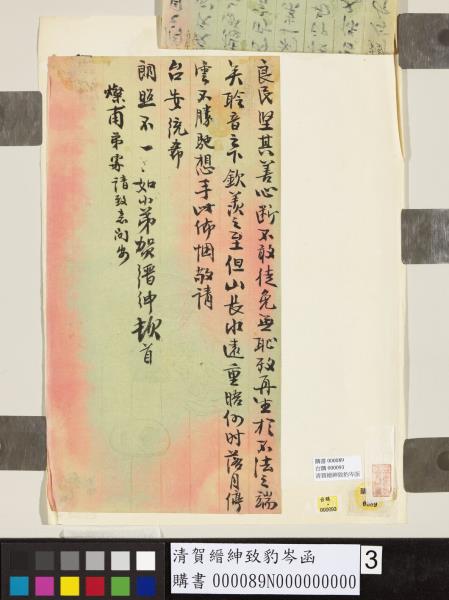 良民堅其善心斷不敢徒免無恥致再生於不法之端
矣聆音之下欽羨之至但山長水遠重晤何時落月停
雲不勝馳想手此佈悃敬請
台安統希
朗照不一 如小弟賀縉紳頓首
燦甫弟家請致意問安
購書 000089
台購 000093
清賀縉紳致豹岑函
台購
000093
清賀縉紳致豹岑函
購書 000089N000000000
3